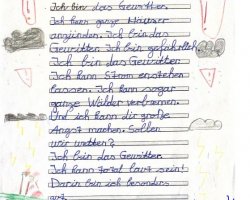 Ich bin das Gewitter.
Ich kann ganze Häuser
anzünden. Ich bin das
Gewitter. Ich bin gefährlich.
Ich bin das Gewitter.
Ich kann Strom enstehen
lassen. Ich kann sogar
ganze Wälder verbrennen.
Und ich kann dir große
Angst machen. Sollen
wir wetten?
Ich bin das Gewitter.
Ich kann total laut sein!
Darin bin ich besonders
gut.